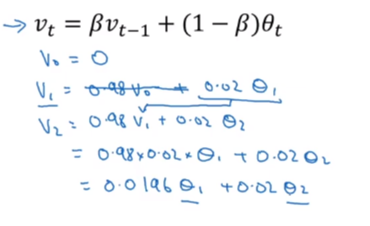 → vₜ = βvₜ₋₁ + (1 − β)θₜ
V₀ = 0
V₁ = 0.98 V₀ + 0.02 θ₁
V₂ = 0.98 V₁ + 0.02 θ₂
= 0.98 × 0.02 × θ₁ + 0.02 θ₂
= 0.0196 θ₁ + 0.02 θ₂